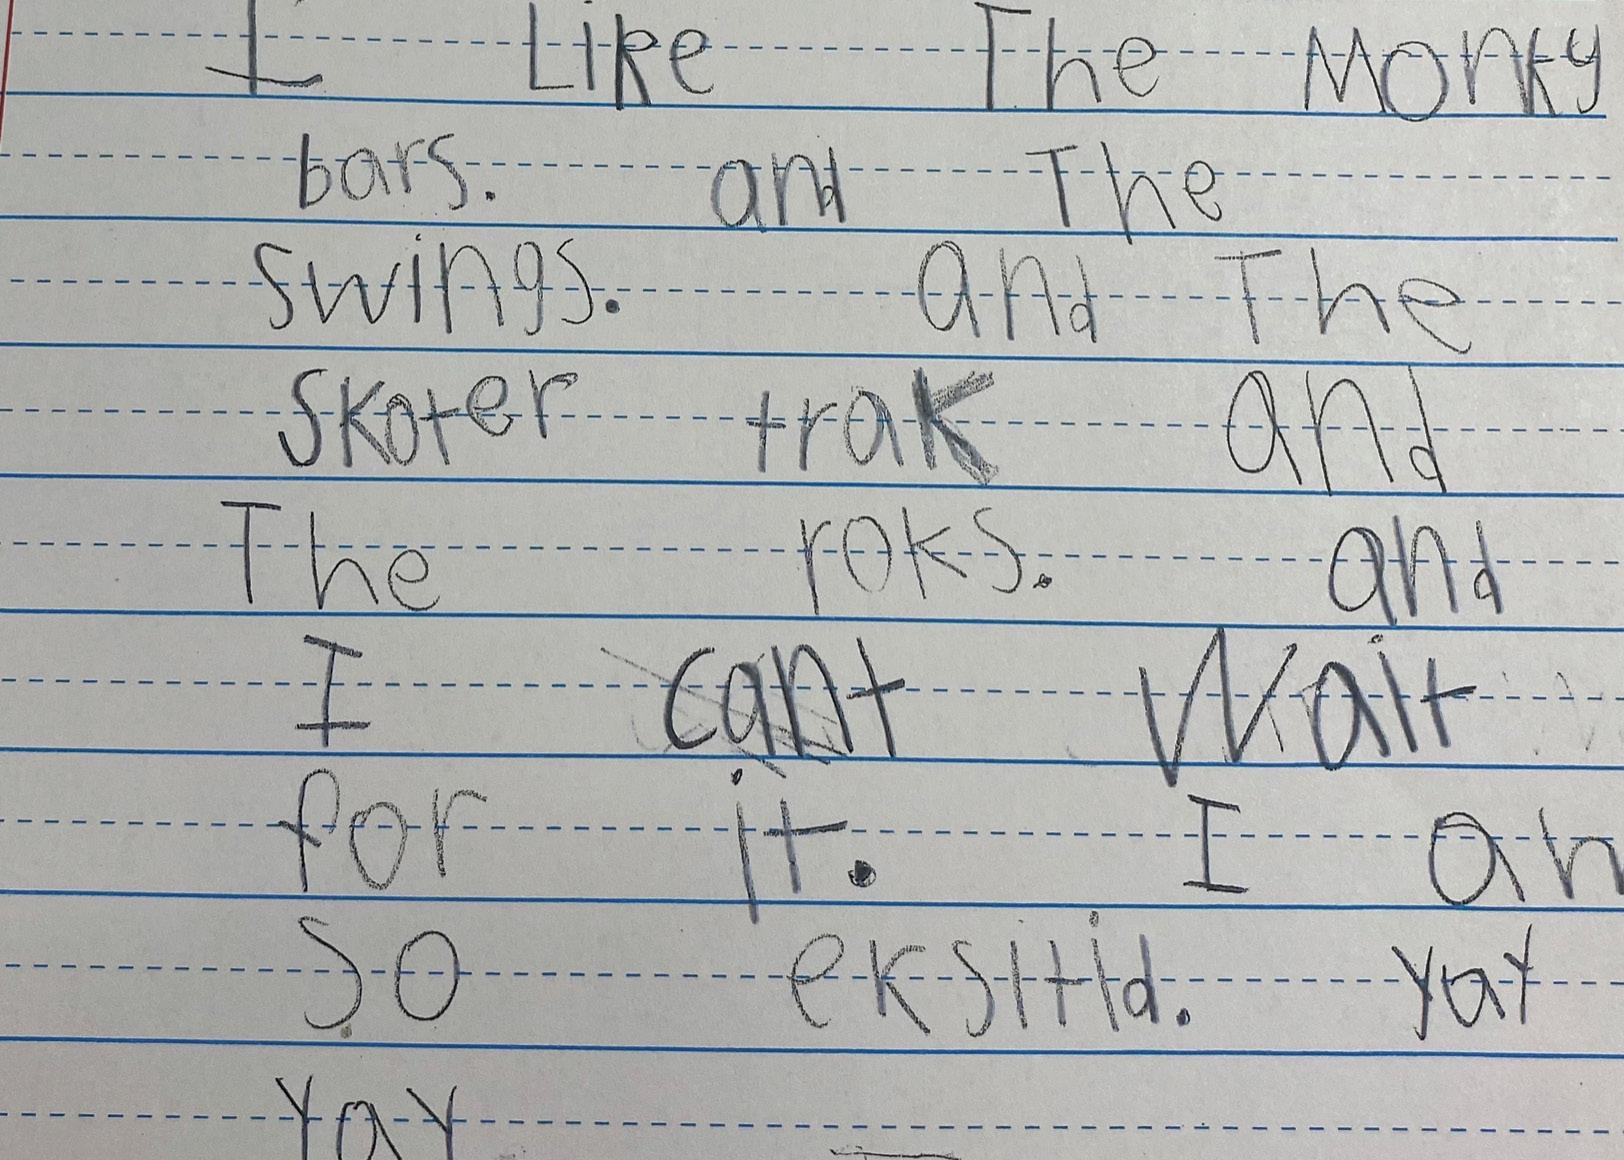 I Like The Monky
bars. and The
swings. and The
skater trak and
The roks. and
I cant Wait
for it. I am
So eksitid. yay
yay